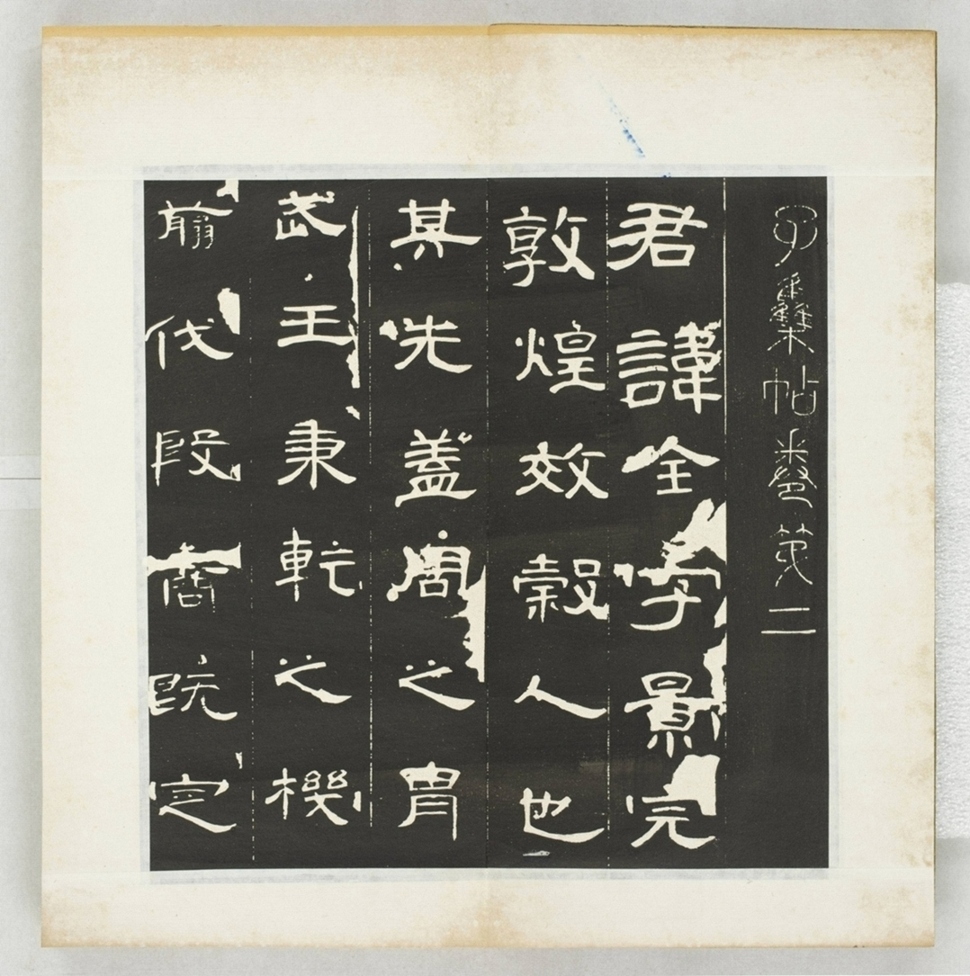 集帖卷第二
君諱全字景完
敦煌效穀人也
其先蓋周之冑
武王秉乾之機
翦伐殷商既定